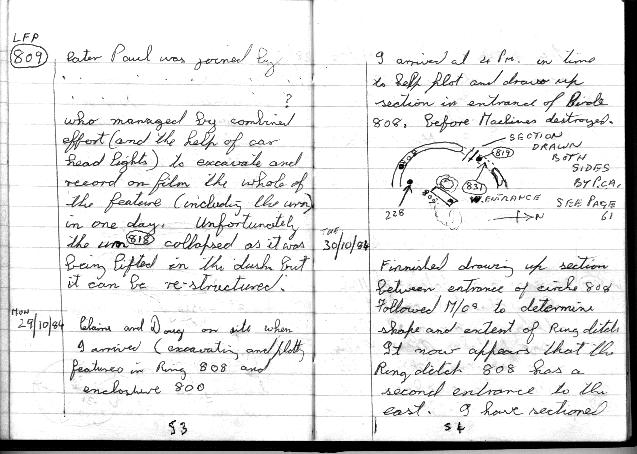 LFP
809
later Paul was joined by
. . . . . . . .
. . . . . . . ?
who managed by combined
effort (and the help of car
head lights) to excavate and
record on film the whole of
the feature (including the urn)
in one day. Unfortunately
the urn 818 collapsed as it was
being lifted in the dusk but
it can be re-structured.
MON
29/10/84
Claire and Doug on site when
I arrived (excavating and plotting
features in Ring 808 and
enclosure 800
53
I arrived at 4 Pm. in time
to help plot and draw up
section in entrance of Circle
808. before Machines destroyed.
SECTION
DRAWN
BOTH
SIDES
BY P.C.A.
SEE PAGE
61
819
808
831
808
W. ENTRANCE
N
228
TUE
30/10/84
Finnished drawing up section
between entrance of circle 808
Followed M/cs to determine
shape and extent of Ring ditch
It now appears that the
Ring ditch 808 has a
second entrance to the
east. I have sectioned
54